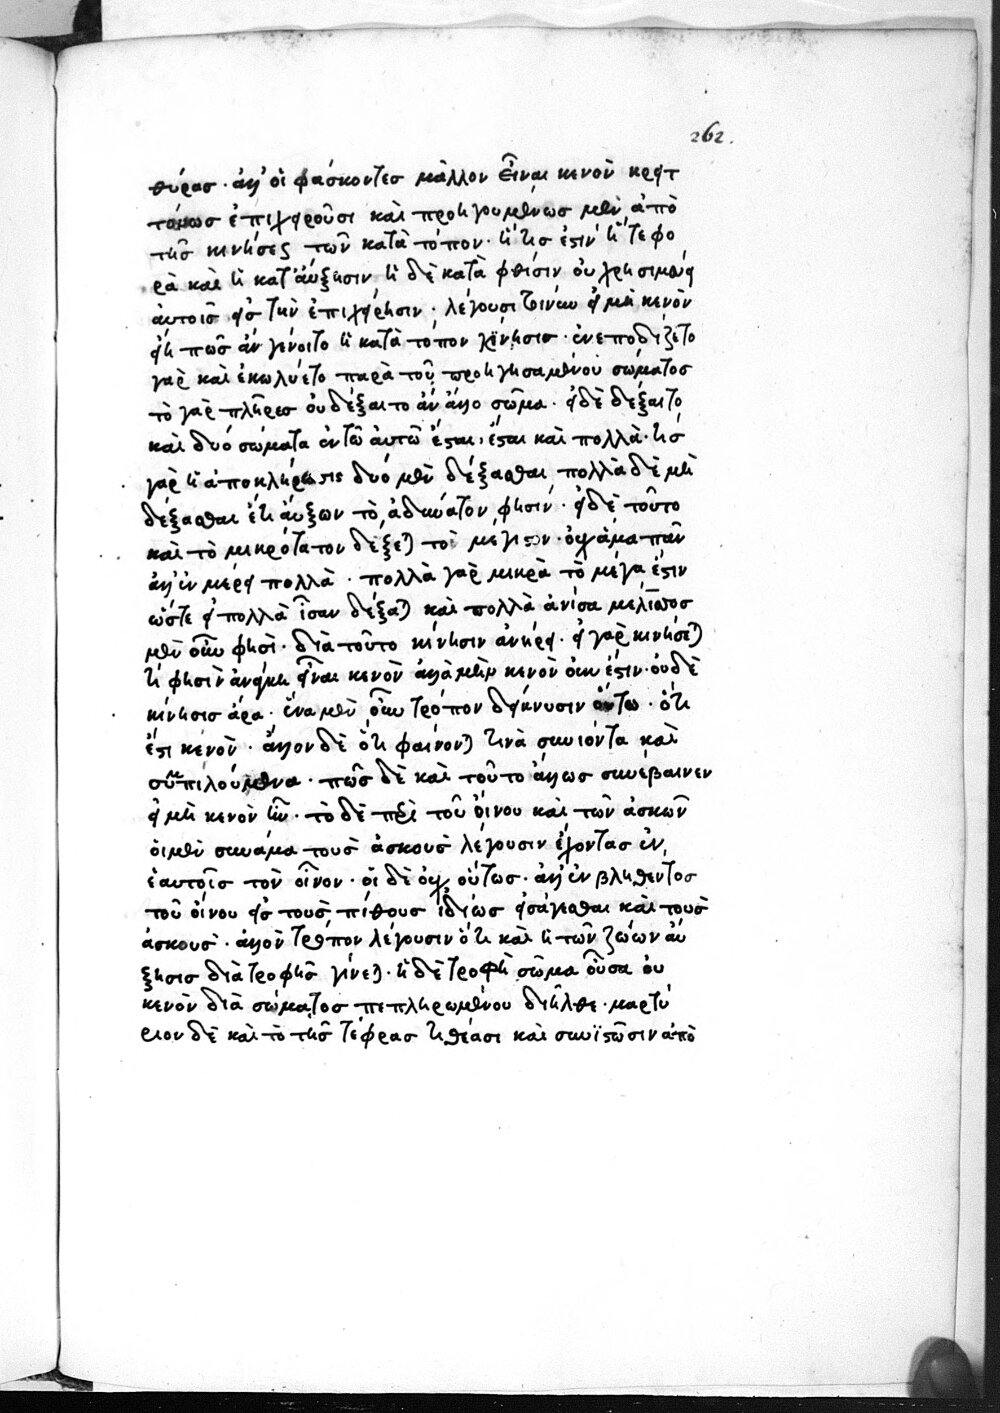 262.
θύρας· ἀλλ' οἱ φάσκοντες μᾶλλον εἶναι κενὸν κρειτ
τόνως ἐπιχειροῦσι καὶ προηγουμένως μὲν ἀπὸ
τῆς κινήσεως τῶν κατὰ τόπον· ἥτις ἐστὶν ἥ τε φο
ρὰ καὶ ἡ κατ' αὔξησιν ἡ δὲ κατὰ φθίσιν οὐ χρησιμεύει
αὐτοῖς εἰς τὴν ἐπιχείρησιν· λέγουσι τοίνυν εἰ μὴ κενὸν
εἴη πῶς ἂν γένοιτο ἡ κατὰ τόπον κίνησις· ἐνεποδίζετο
γὰρ καὶ ἐκωλύετο παρὰ τοῦ προηγησαμένου σώματος
τὸ γὰρ πλῆρες οὐ δέξαιτο ἂν ἄλλο σῶμα· εἰ δὲ δέξαιτο
καὶ δύο σώματα ἐν τῶ αὐτῶ ἔσται, ἔσται καὶ πολλὰ· τίς
γὰρ ἡ ἀποκλήρωσις δύο μὲν δέξασθαι πολλὰ δὲ μὴ
δέξασθαι ἔτι αὔξων τὸ ἀδύνατον φησὶν· εἰ δὲ τοῦτο
καὶ τὸ μικρότατον δέξεται τὸ μέγιστον· οὐχ ἅμα πᾶν
ἀλλ' ἐν μέρει πολλὰ· πολλὰ γὰρ μικρὰ τὸ μέγα ἐστιν
ὥστε εἰ πολλὰ ἴσαν δέξαται καὶ πολλὰ ἄνισα μέλιππος
μὲν οὖν φησὶ· διὰ τοῦτο κίνησιν ἀνήρει· εἰ γὰρ κινήσεται
τί φησὶν ἀνάγκη εἶναι κενὸν ἀλλὰ μὴν κενὸν οὐκ ἔστιν· οὐδὲ
κίνησις ἄρα· ἕνα μὲν οὖν τρόπον δείκνυσιν οὕτω· ὅτι
ἔστι κενὸν· ἄλλον δὲ ὅτι φαίνονται τινὰ συνιόντα καὶ
συμπιλούμενα· πῶς δὲ καὶ τοῦτο ἄλλως συνέβαινεν
εἰ μὴ κενὸν ἦν· τὸ δὲ περὶ τοῦ οἴνου καὶ τῶν ἀσκῶν
οἱ μὲν συνάμα τοὺς ἀσκοὺς λέγουσιν ἔχοντας ἐν
ἑαυτοῖς τὸν οἶνον· οἱ δὲ οὐχ οὕτως· ἀλλ' ἐμβληθέντος
τοῦ οἴνου εἰς τοὺς πίθους ἰδίως εἰσάγεσθαι καὶ τοὺς
ἀσκοὺς· ἄλλον τρόπον λέγουσιν ὅτι καὶ ἡ τῶν ζώων αὔ
ξησις διὰ τροφῆς γίνεται· ἡ δὲ τροφὴ σῶμα οὖσα οὐ
κενὸν διὰ σώματος πεπληρωμένου διῆλθε· μαρτύ
ριον δὲ καὶ τὸ τῆς τέφρας τιθέασι καὶ συνϊστῶσιν ἀπὸ